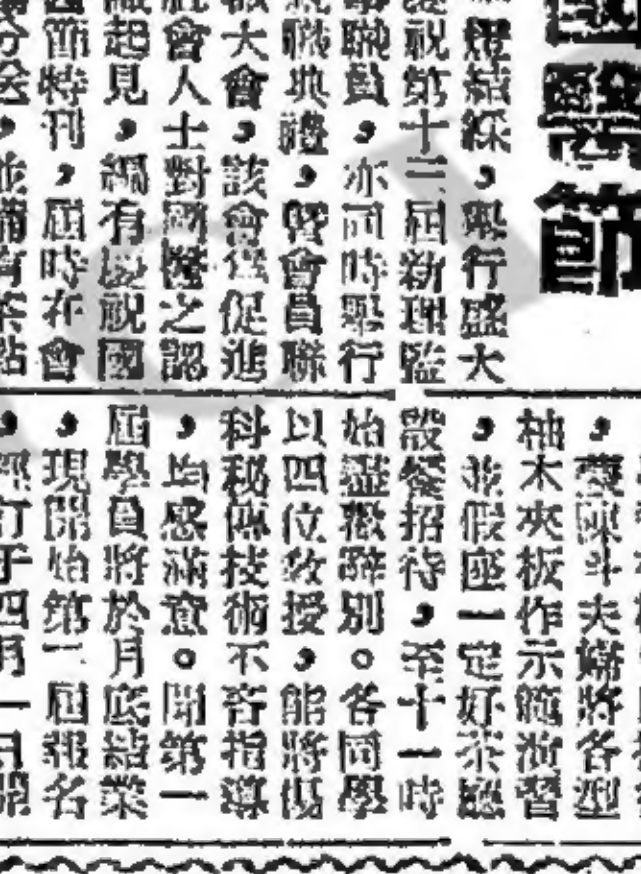 國醫節
燈結綵,舉行盛大
祝第十三屆新理監
職員,亦同時舉行
就職典禮,暨會員聯
大會,該會爲促進
會人士對國醫之認
起見,編有慶祝國
節特刊,屆時在會
分送,並備有茶點
,蒙陳斗夫將各型
柚木夾板作示範演習
,並假座一定好茶廳
設餐招待,至十一時
始盡歡辭別。各同學
以四位教授,能將傷
科秘傳技術不吝指導
,均感滿意。聞第一
屆學員將於月底結業
,現開始第二屆報名
,經訂于四月一日開